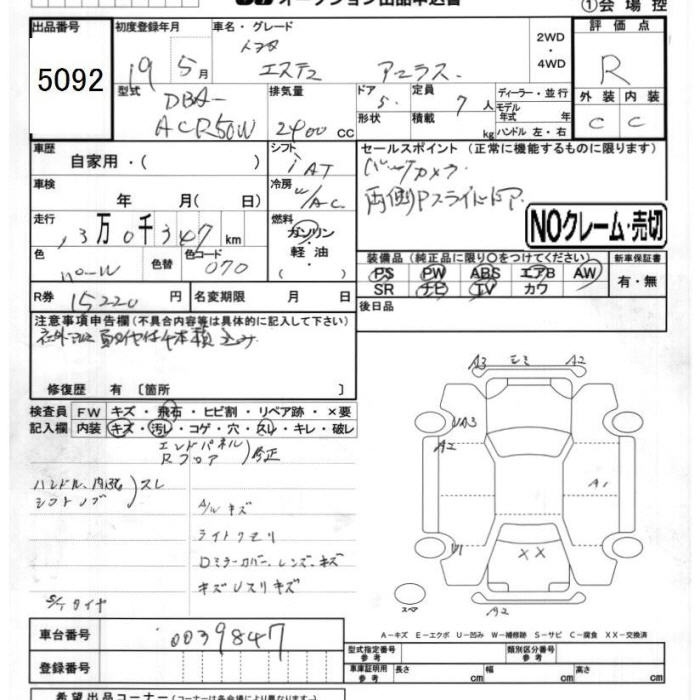 オークション出品申込書
①会場控
出品番号
5092
初度登録年月
19 5月
車名・グレード
トヨタ
エスティマ アエラス
2WD
・
4WD
評価点
R
型式
DBA-
ACR50W
排気量
2400 cc
ドア
5
定員
7人
形状
積載
kg
ディーラー・並行
モデル
年式 年
ハンドル 左・右
外装
内装
C
C
車歴
自家用・( )
シフト
iAT
セールスポイント (正常に機能するものに限ります)
バックカメラ
両側Pスライドドア
車検
年 月( 日)
冷房
AC
NOクレーム・売切
走行
13万0千347km
燃料
ガソリン
・
軽油
・
( )
色
パール
色替
色コード
070
装備品 (純正品に限り○をつけてください)
PS PW ABS エアB AW
SR ナビ TV カワ
新車保証書
有・無
R券
15220円
名変期限 月 日
後日品
注意事項申告欄 (不具合内容等は具体的に記入して下さい)
修復歴 有 〔箇所 〕
検査員
記入欄
FW キズ・飛石・ヒビ割・リペア跡・×要
内装 キズ・汚レ・コゲ・穴・スレ・キレ・破レ
エンドパネル
Rフロア
修正
ハンドル、内張
シフトノブ
スレ
A/Wキズ
ライトクモリ
Dミラーカバー、レンズ、キズ
キズUスリキズ
S/Tタイヤ
A3 A2
UA3
A2
A1
U1
XX
A2
スペア
A-キズ E-エクボ U-凹み W-補修跡 S-サビ C-腐食 XX-交換済
車台番号
0039847
登録番号
型式指定番号
参考
類別区分番号
参考
車庫証明用
参考
長さ cm
幅 cm
高さ cm
希望出品コーナー (コーナーは各会場により異なります)